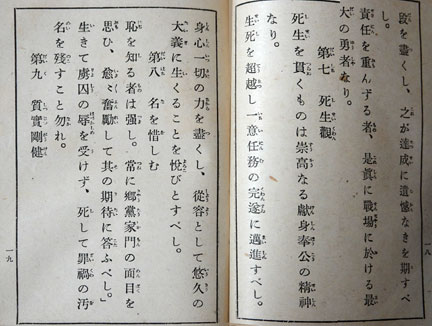 段を盡くし、之が達成に遺憾なきを期すべし。
責任を重んずる者、是眞に戰場に於ける最
大の勇者なり。
第七 死生觀
死生を貫くものは崇高なる獻身奉公の精神
なり。
生死を超越し一意任務の完遂に邁進すべし。
身心一切の力を盡くし、從容として悠久の
大義に生くることを悅びとすべし。
第八 名を惜しむ
恥を知る者は强し。常に鄕黨家門の面目を
思ひ、愈〻奮勵して其の期待に答ふべし。
生きて虜囚の辱を受けず、死して罪禍の汚
名を殘すこと勿れ。
第九 質實剛健
一九